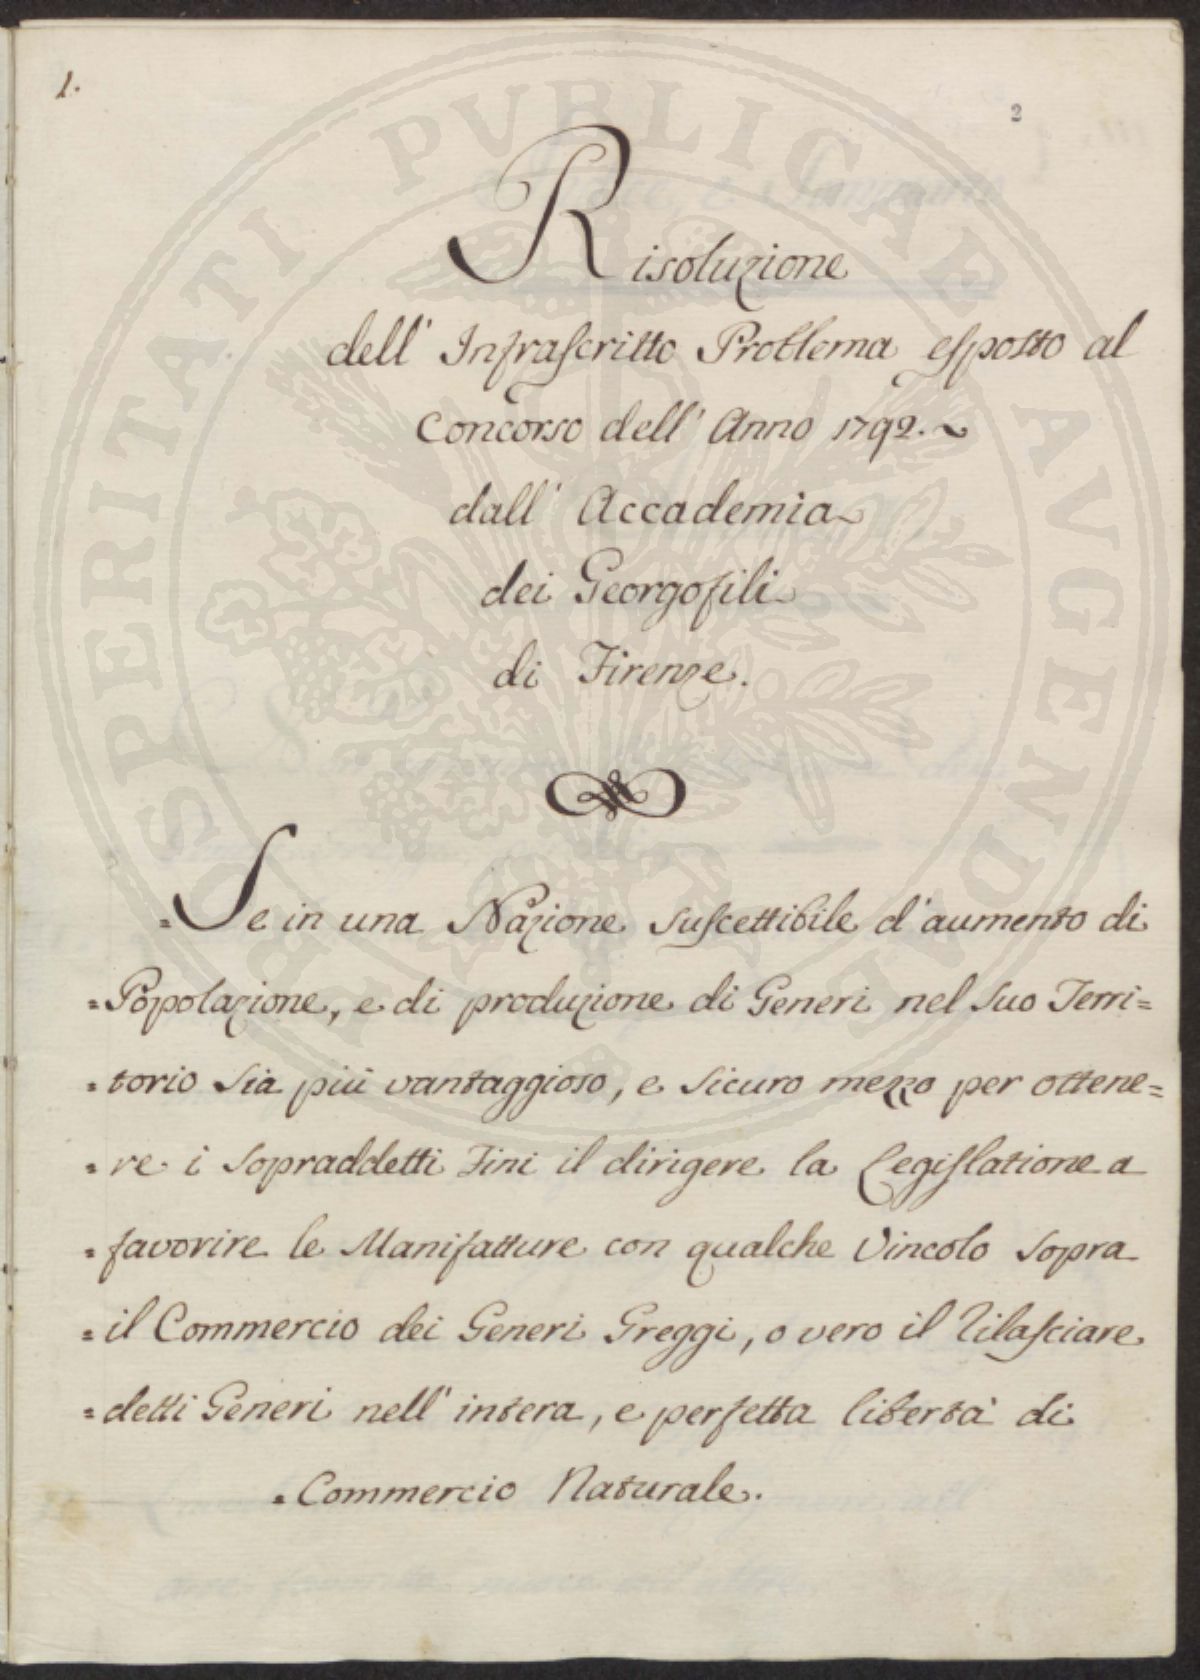 1.
2
Risoluzione
dell' Infrascritto Problema esposto al
Concorso dell' Anno 1792.
dall' Accademia
dei Georgofili
di Firenze.
=Se in una Nazione suscettibile d'aumento di
=Popolazione, e di produzione di Generi nel suo Terri=
=torio sia più vantaggioso, e sicuro mezzo per ottene=
=re i sopraddetti Fini il dirigere la Legislatione a
=favorire le Manifatture con qualche Vincolo sopra
=il Commercio dei Generi Greggi, o vero il rilasciare
=detti Generi nell' intera, e perfetta libertà di
=Commercio Naturale.
PROSPERITATI PUBLICAE AUGENDAE